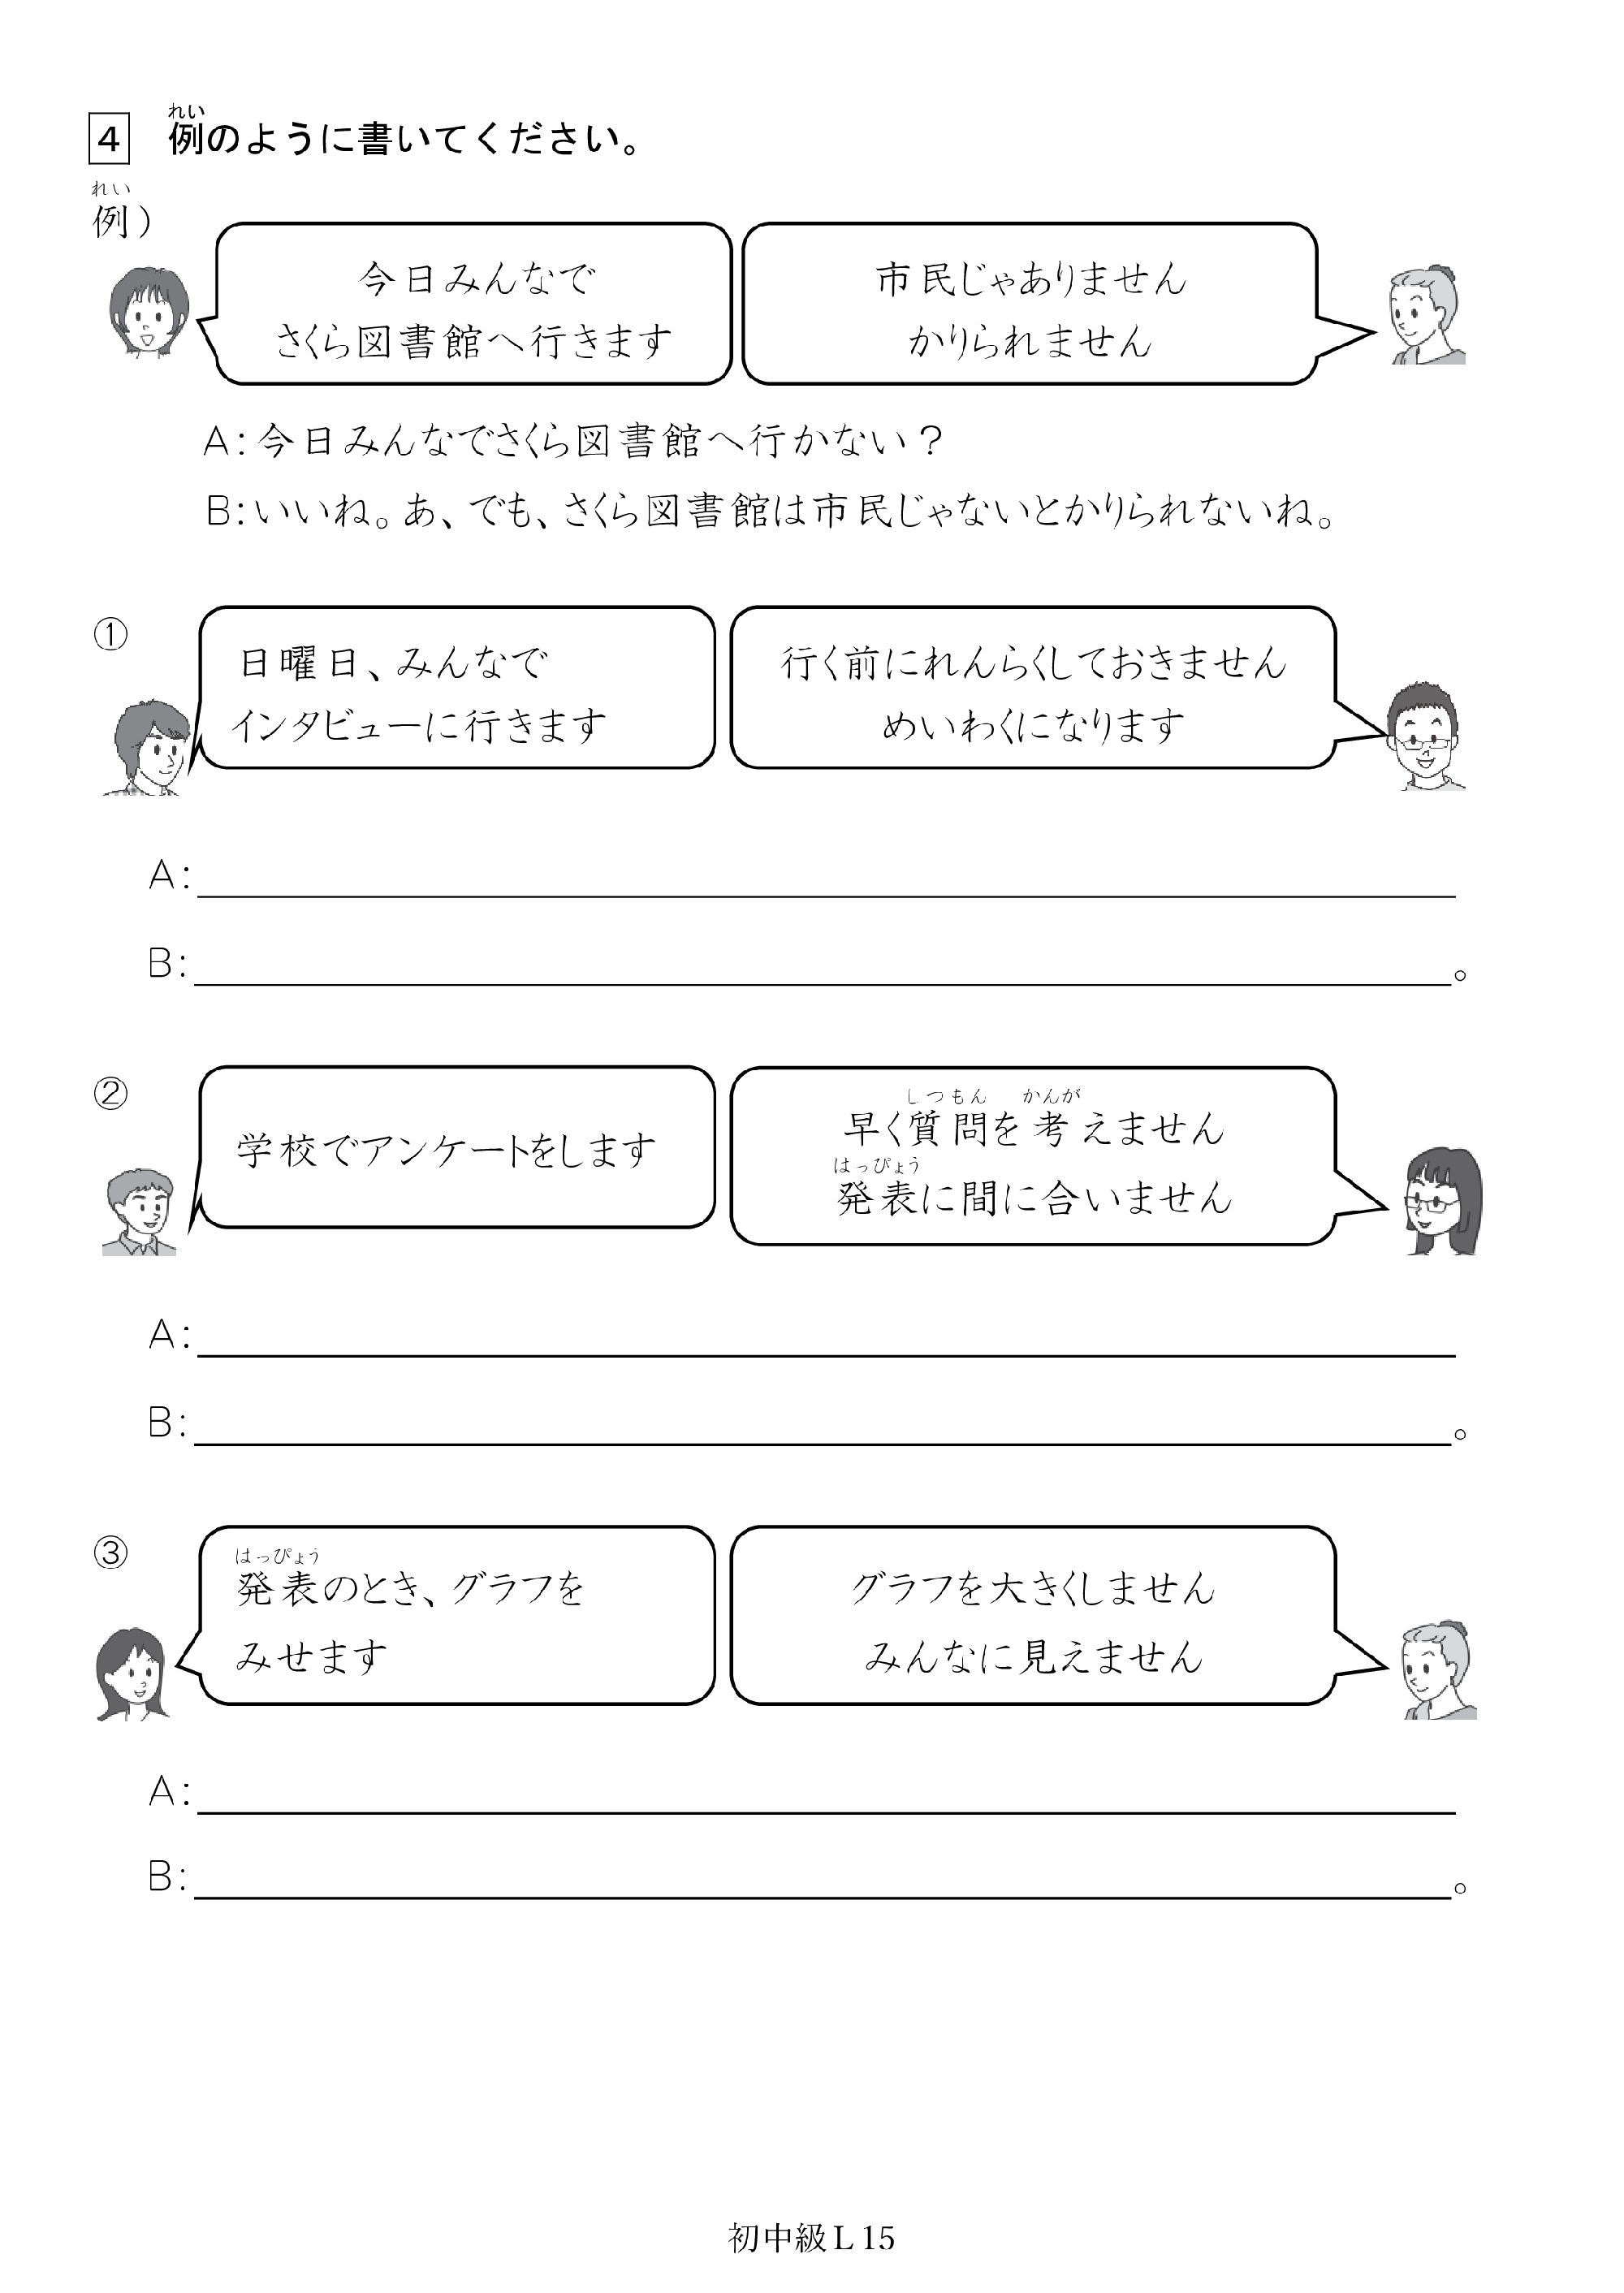 4 例のように書いてください。
れい
例）
れい
今日みんなで
さくら図書館へ行きます
市民じゃありません
かりられません
A：今日みんなでさくら図書館へ行かない？
B：いいね。あ、でも、さくら図書館は市民じゃないとかりられないね。
①
日曜日、みんなで
インタビューに行きます
行く前にれんらくしておきません
めいわくになります
A：
B：。
②
学校でアンケートをします
しつもん かんが
早く質問を考えません
はっぴょう
発表に間に合いません
A：
B：。
③
はっぴょう
発表のとき、グラフを
みせます
グラフを大きくしません
みんなに見えません
A：
B：。
初中級L 15